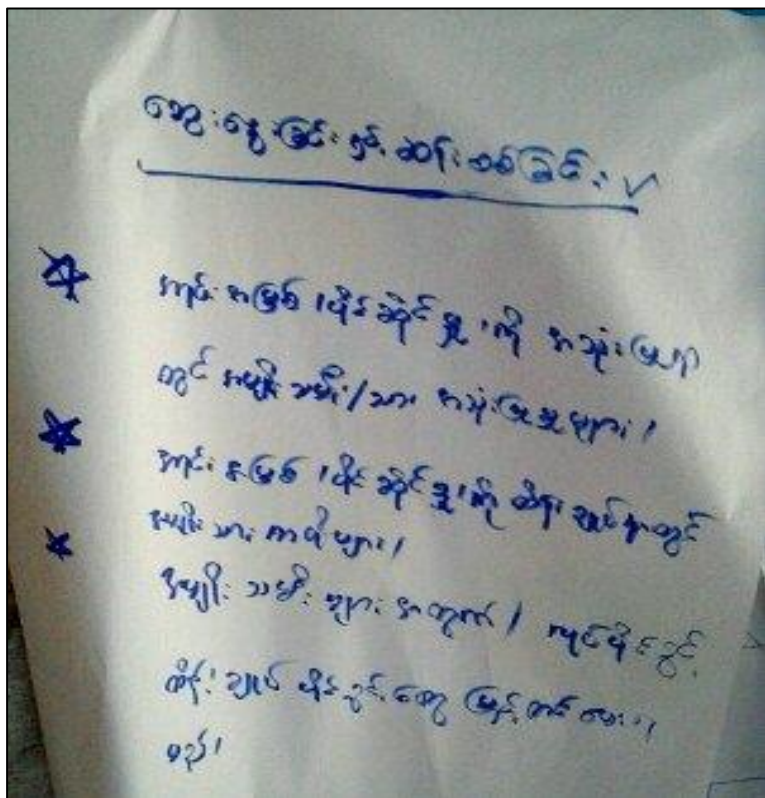 ဆွေးနွေးခြင်းနှင့် ဆန်းစစ်ခြင်း ✓
အရင်းအမြစ် ၊ ပိုင်ဆိုင်မှု ၊ ကို အသုံးပြုရာ
တွင် အမျိုးသမီး/သား အသုံးပြုမှုများ ၊
အရင်းအမြစ် ၊ ပိုင်ဆိုင်မှု ၊ ကို ထိန်းချုပ်ရာတွင်
အမျိုးသား ကပိုများ ၊
အမျိုးသမီးများအတွက် ၊ လုပ်ပိုင်ခွင့်
ထိန်းချုပ်ပိုင်ခွင့်တွေ မြှင့်တင်ပေးရ
မည်၊